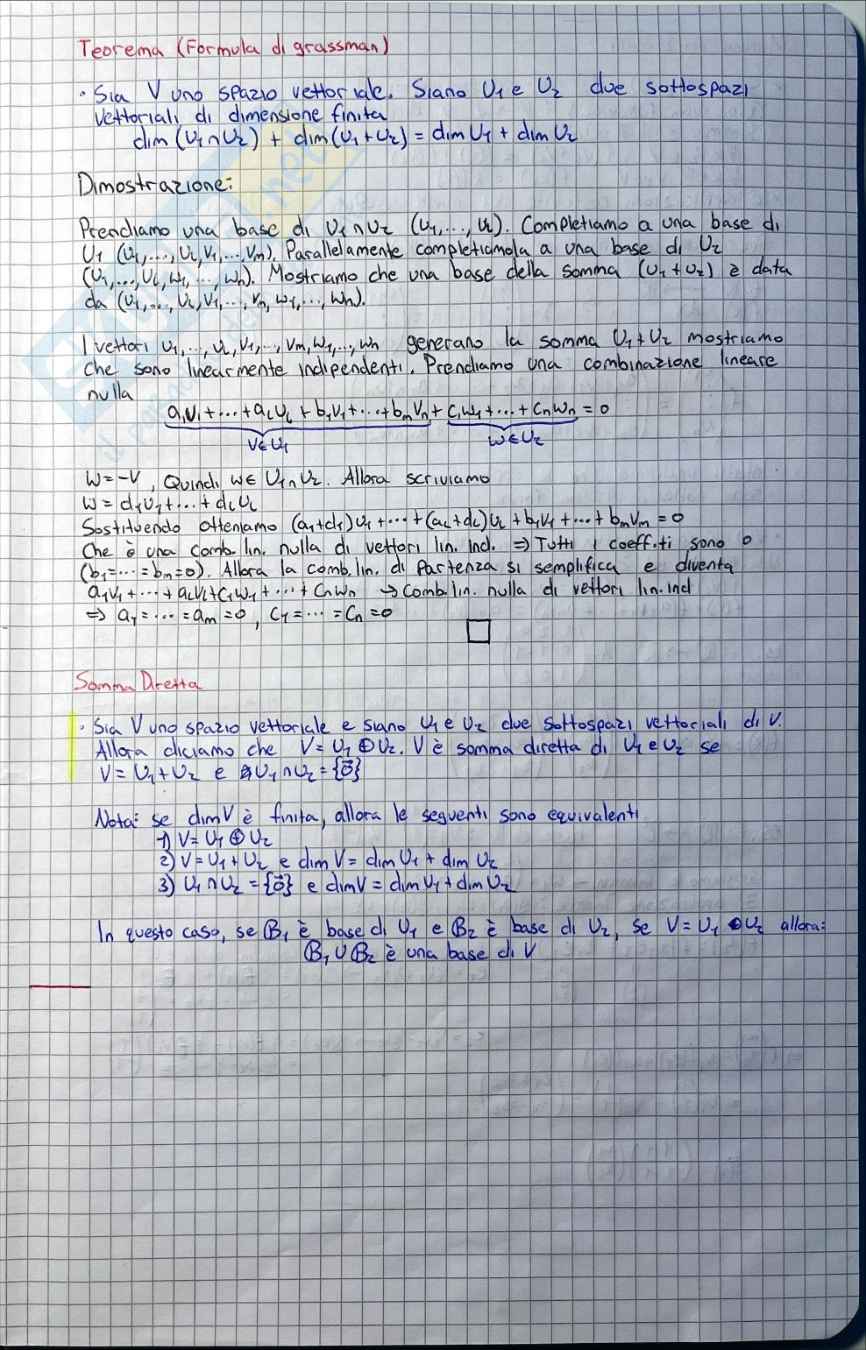 Teorema (Formula di grassman)
• Sia V uno spazio vettoriale. Siano U₁ e U₂ due sottospazi
vettoriali di dimensione finita
dim (U₁∩U₂) + dim(U₁+U₂) = dim U₁ + dim U₂
Dimostrazione:
Prendiamo una base di U₁∩U₂ (u₁,...,u_L). Completiamo a una base di
U₁ (u₁,...,u_L,v₁,...,v_m). Parallelamente completiamola a una base di U₂
(u₁,...,u_L,w₁,...,w_n). Mostriamo che una base della somma (U₁+U₂) è data
da (u₁,...,u_L,v₁,...,v_n,w₁,...,w_n).
I vettori u₁,...,u_L,v₁,...,v_m,w₁,...,w_n generano la somma U₁+U₂ mostriamo
che sono linearmente indipendenti. Prendiamo una combinazione lineare
nulla
a₁u₁+...+a_Lu_L+b₁v₁+...+b_mv_n+c₁w₁+...+c_nw_n=0
v∈U₁ w∈U₂
w=-v, Quindi w∈U₁∩U₂. Allora scriviamo
w=d₁u₁+...+d_Lu_L
Sostituendo otteniamo (a₁+d₁)u₁+...+(a_L+d_L)u_L+b₁v₁+...+b_mv_m=0
Che è una comb. lin. nulla di vettori lin. ind. ⇒ Tutti i coeff.ti sono 0
(b₁=...=b_m=0). Allora la comb. lin. di partenza si semplifica e diventa
a₁v₁+...+a_Lv_L+c₁w₁+...+c_nw_n → Comb. lin. nulla di vettori lin. ind
⇒ a₁=...=a_m=0, c₁=...=c_n=0
□
Somma Diretta
• Sia V uno spazio vettoriale e siano U₁ e U₂ due sottospazi vettoriali di V.
Allora diciamo che V=U₁⊕U₂. V è somma diretta di U₁ e U₂ se
V=U₁+U₂ e U₁∩U₂={0⃗}
Nota: se dimV è finita, allora le seguenti sono equivalenti
1) V=U₁⊕U₂
2) V=U₁+U₂ e dim V=dim U₁+dim U₂
3) U₁∩U₂={0⃗} e dimV=dimU₁+dimU₂
In questo caso, se B₁ è base di U₁ e B₂ è base di U₂, se V=U₁⊕U₂ allora:
B₁∪B₂ è una base di V